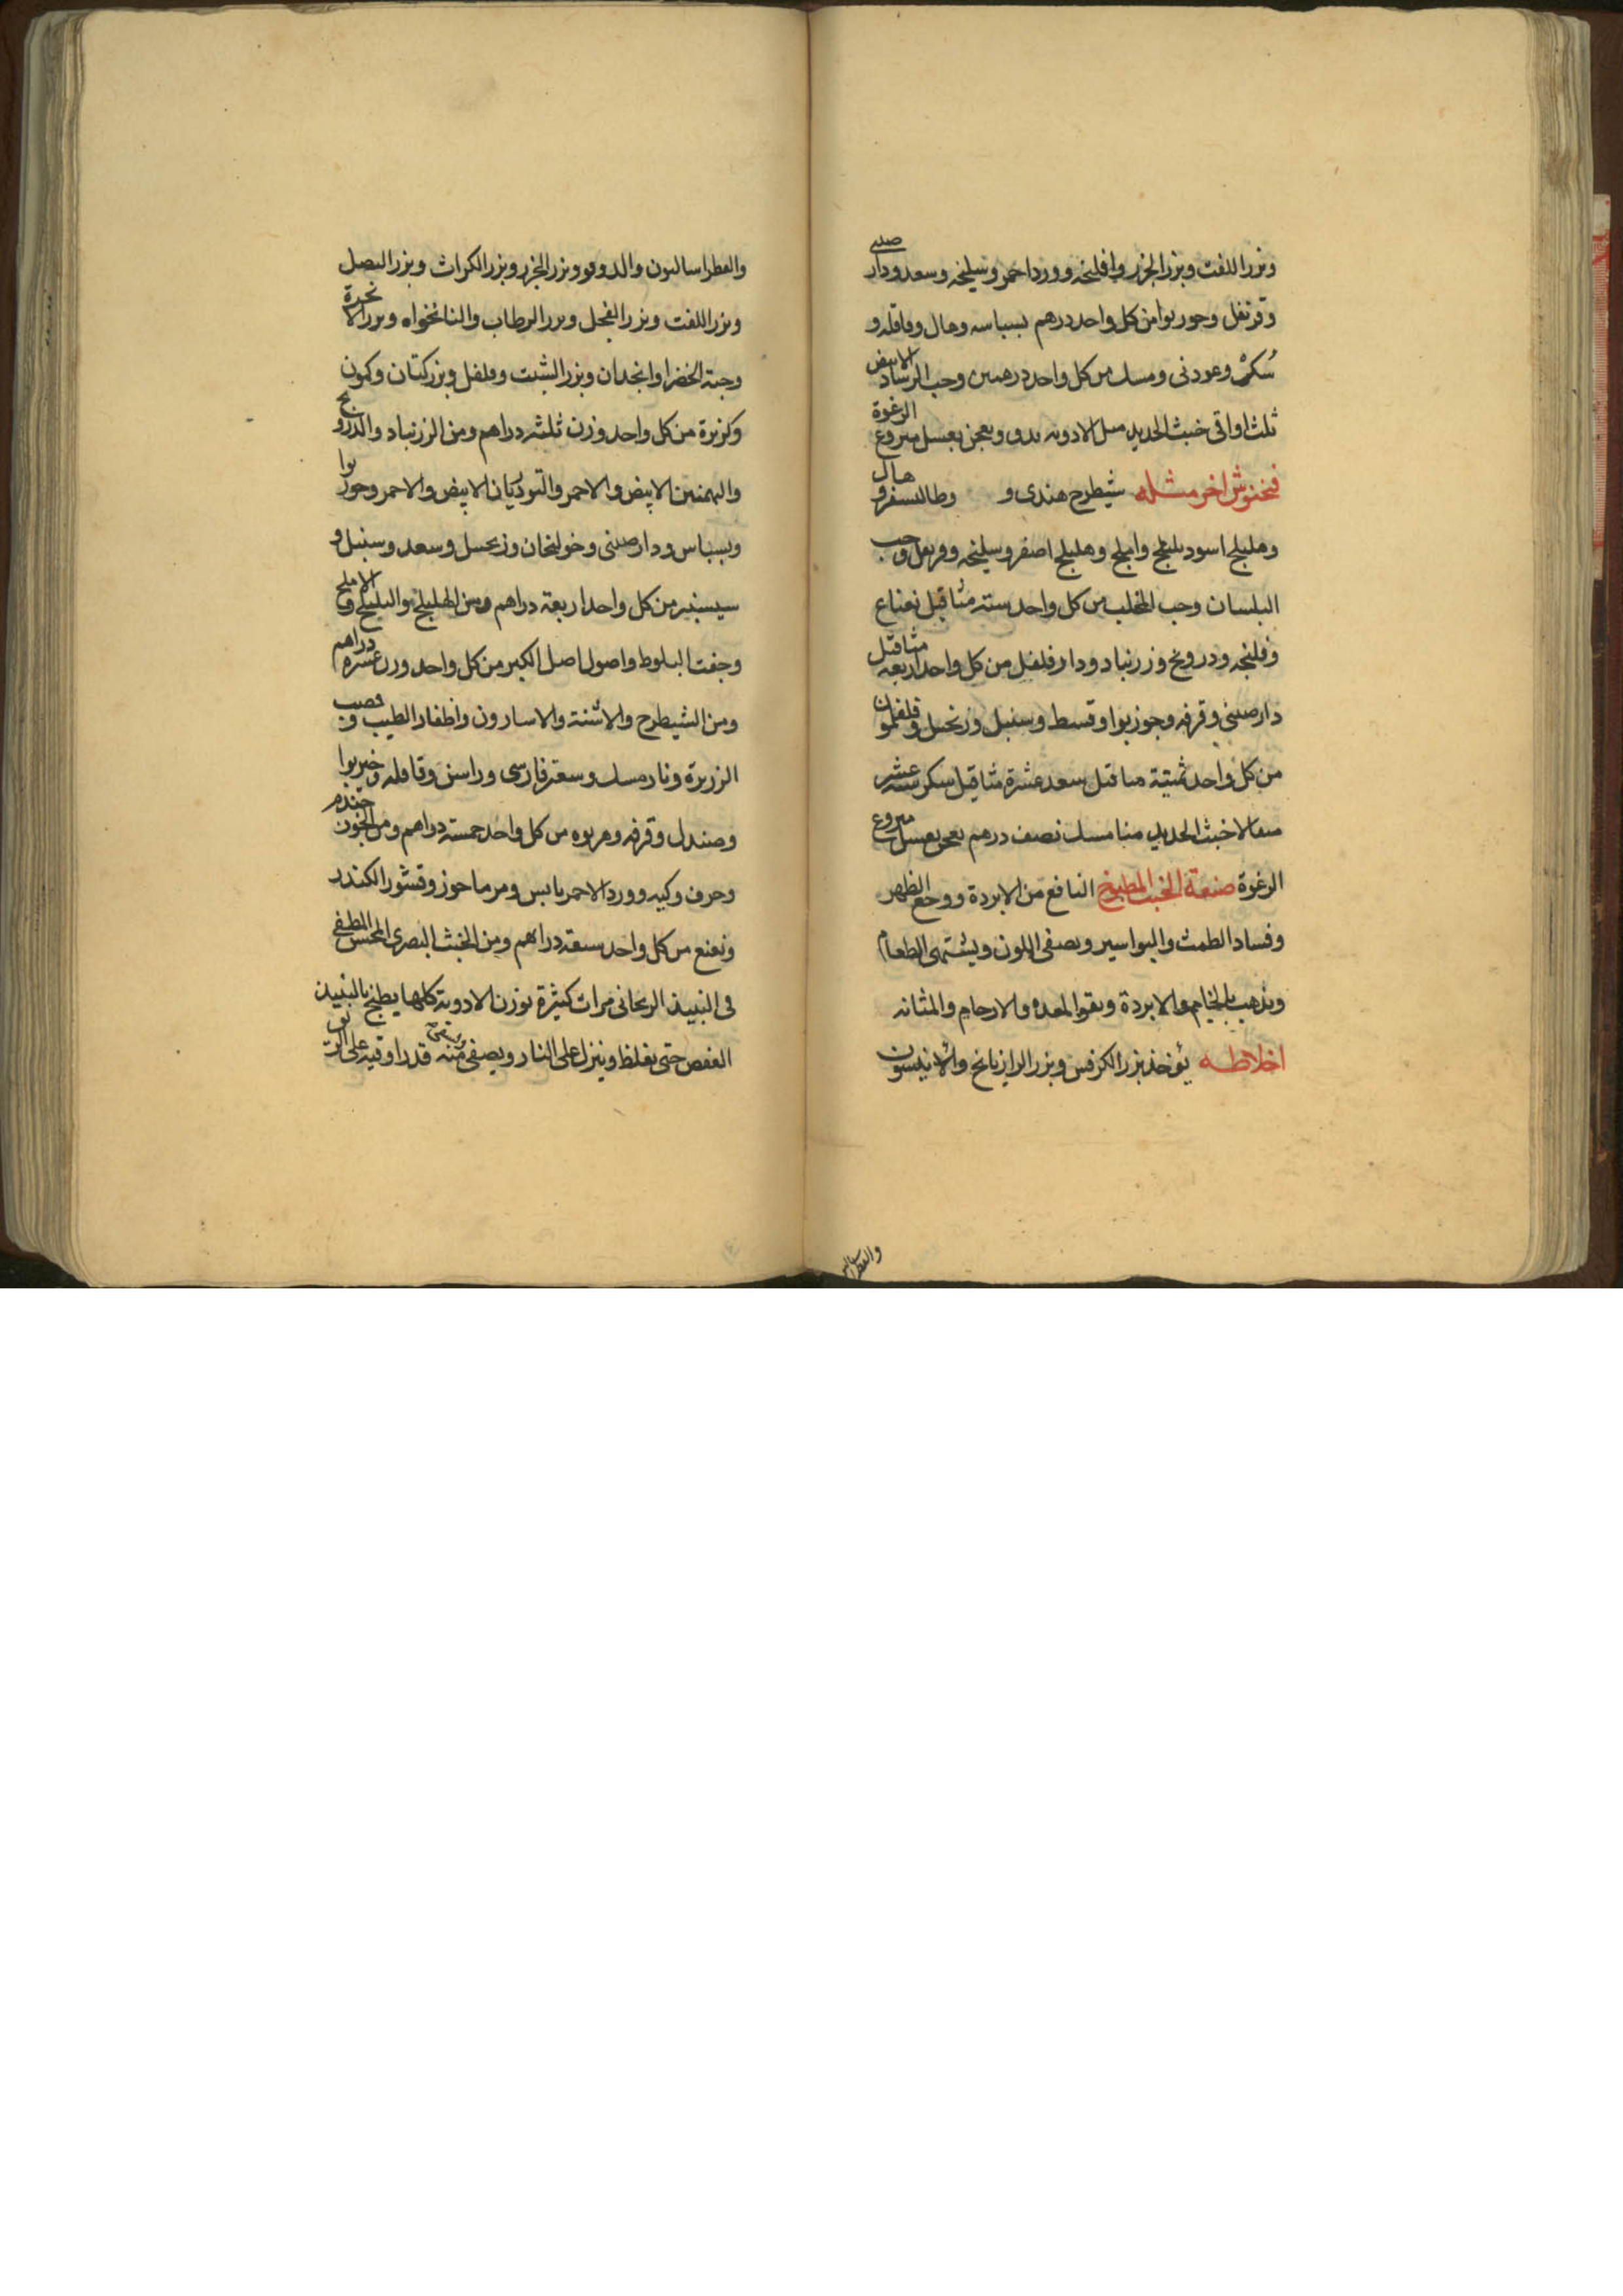 وبزر اللفت وبزر الجزر وافلنجه وورد احمر وسليخه وسعد ودار صينى
وقرنفل وجوز بوا من كل واحد درهم بسباسه وهال وقاقله و
سُكر وعود نى ومسك من كل واحد درهمين وحب الرشاد الابيض
ثلث اواقى خبث الحديد مثل الادويه يدق ويعجن بعسل منزوع الرغوة
فنجنوش اخر مثله شيطرج هندى و وطاليسفر و هال
وهليلج اسود بليلج واملج وهليلج اصفر وسليخه وقرنفل وحب
البلسان وحب المحلب من كل واحد سته مثاقيل نعناع
وفلنجه ودرونج وزرنباد ودارفلفل من كل واحد اربعه مثاقيل
دارصينى وقرفه وجوزبوا وقسط وسنبل وزنجبيل وفلفلمون
من كل واحد ثمنية مثاقيل سعد عشرة مثاقيل سكر ستة عشر
مثقالا خبث الحديد منا مسك نصف درهم يعجن بعسل منزوع
الرغوة صنعة الخبث المطبوخ النافع من الابردة ووجع الظهر
وفساد الطمث والبواسير ويصفى اللون ويشتهى الطعام
ويذهب بالخام والابردة ويقوا المعده والارحام والمثانه
اخلاطه يؤخذ بزر الكرفس وبزر الرازيانج والانيسون
والفطراساليون والدوقو وبزر الجزر وبزر الكراث وبزر البصل
وبزر اللفت وبزر الفجل وبزر الرطاب والنانخواه وبزر الانجرة
وحبة الخضرا وانجدان وبزر الشبت وفلفل وبزر كتان وكمون
وكزبرة من كل واحد وزن ثلثه دراهم ومن الزرنباد والدرونج
والبهمنين الابيض والاحمر والتودريان الابيض والاحمر وجوز بوا
وبسباس ودارصينى وخولنجان وزنجبيل وسعد وسنبل و
سيسنبر من كل واحد اربعة دراهم ومن الهليلج والبليلج والاملج
وجفت البلوط واصول اصل الكبر من كل واحد وزن عشرة دراهم
ومن الشيطرج والاشنة والاسارون واظفار الطيب وقصب
الزريرة ونارمسك وسعتر فارسى وراسن وقاقله وخيربوا
وصندل وقرفه وهربوه من كل واحد خمسة دراهم ومن الجوز جندم
وحرف وكيه وورد الاحمر يابس ومرماحوز وقشور الكندر
ونعنع من كل واحد سبعة دراهم ومن الخبث البصرى المطفى
فى النبيذ الريحانى مرات كثيرة بوزن الادوية كلها يطبخ بالنبيذ
العفص حتى يغلظ وينزل على النار ويصفى منه قدر اوقيه على الريق